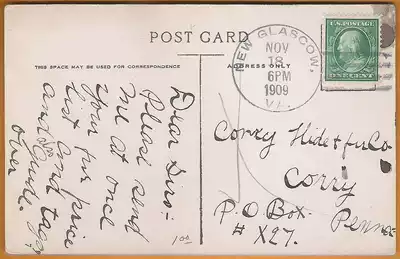 POST CARD
THIS SPACE MAY BE USED FOR CORRESPONDENCE
ADDRESS ONLY
NEW GLASCOW,
NOV
18
6PM
1909
VA.
U.S. POSTAGE
ONE CENT
Dear Sirs:-
Please send
me at once
Your fur price
list and tags
and Guide.
over
1.00
Corry Hide & fur Co
Corry
Penna
P.O. Box
# X27.